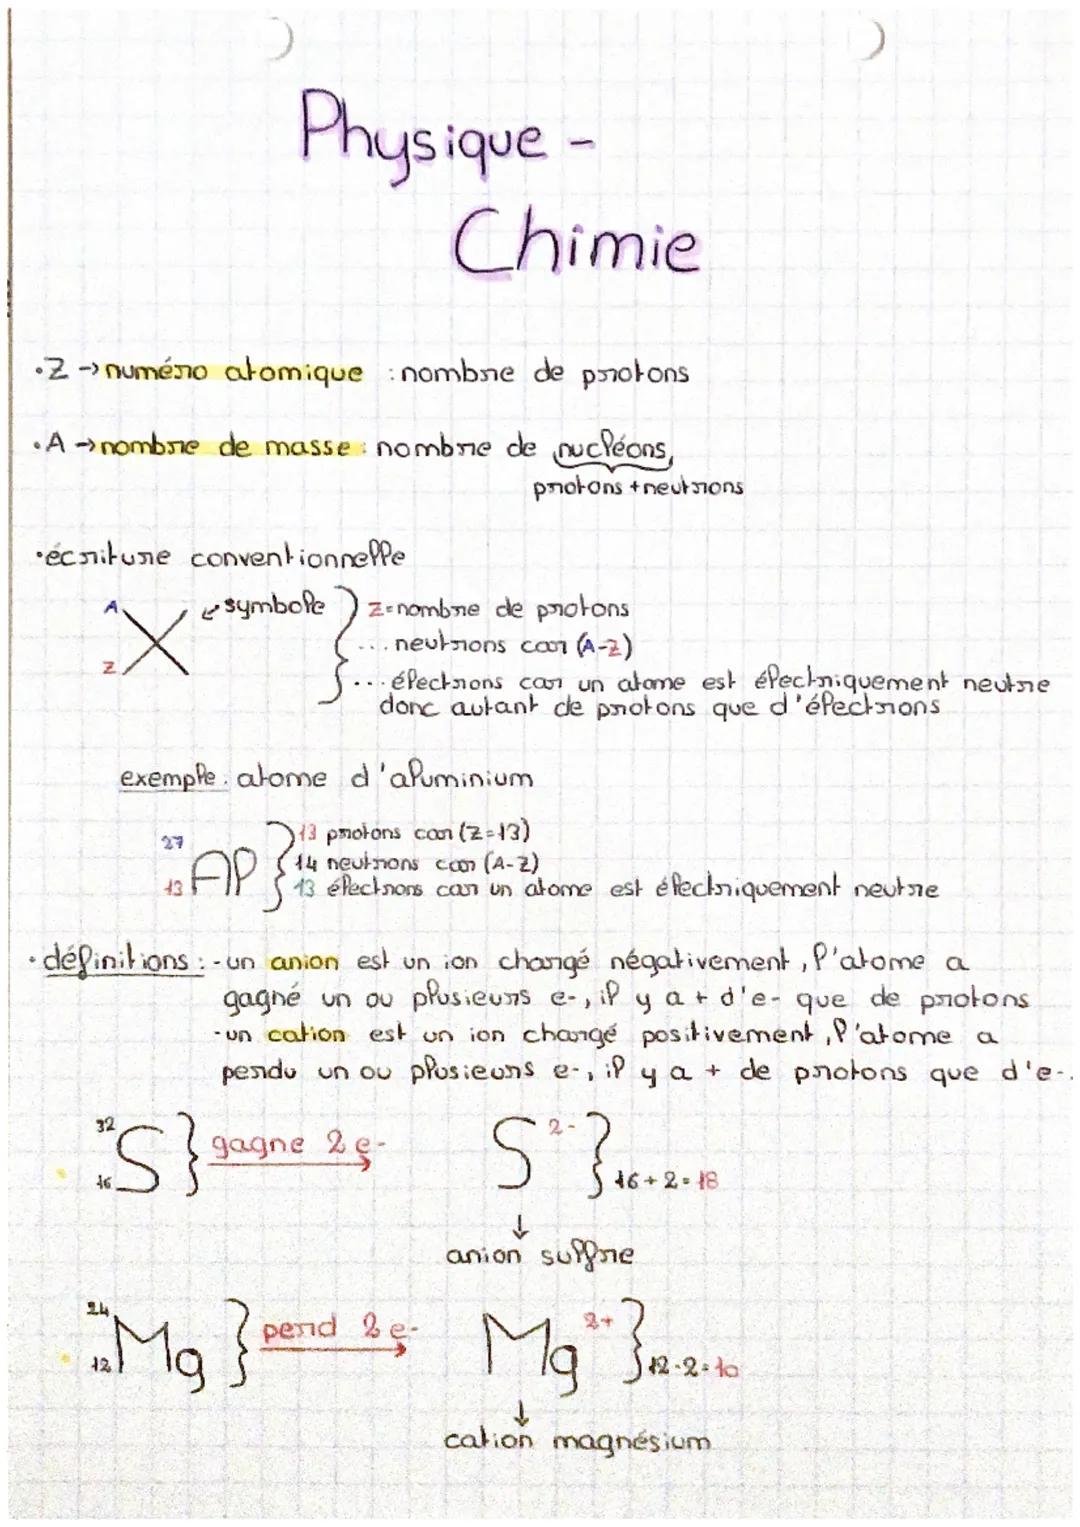 Physique -
Chimie
•Z → numéro atomique : nombre de protons
•A → nombre de masse : nombre de nucléons,
protons + neutrons
•écriture conventionnelle
A
Z
X
symbole
} Z = nombre de protons
... neutrons car (A-Z)
... électrons car un atome est électriquement neutre
donc autant de protons que d'électrons
exemple : atome d'aluminium
27
13
Al
} 13 protons car (Z=13)
14 neutrons car (A-Z)
13 électrons car un atome est électriquement neutre
•définitions : - un anion est un ion chargé négativement, l'atome a
gagné un ou plusieurs e-, il y a + d'e- que de protons
- un cation est un ion chargé positivement, l'atome a
perdu un ou plusieurs e-, il y a + de protons que d'e-.
32
16
S } gagne 2 e- → S 2- } 16 + 2 = 18
↓
anion sulfre
24
12
Mg } perd 2 e- → Mg 2+ } 12 - 2 = 10
↓
cation magnésium